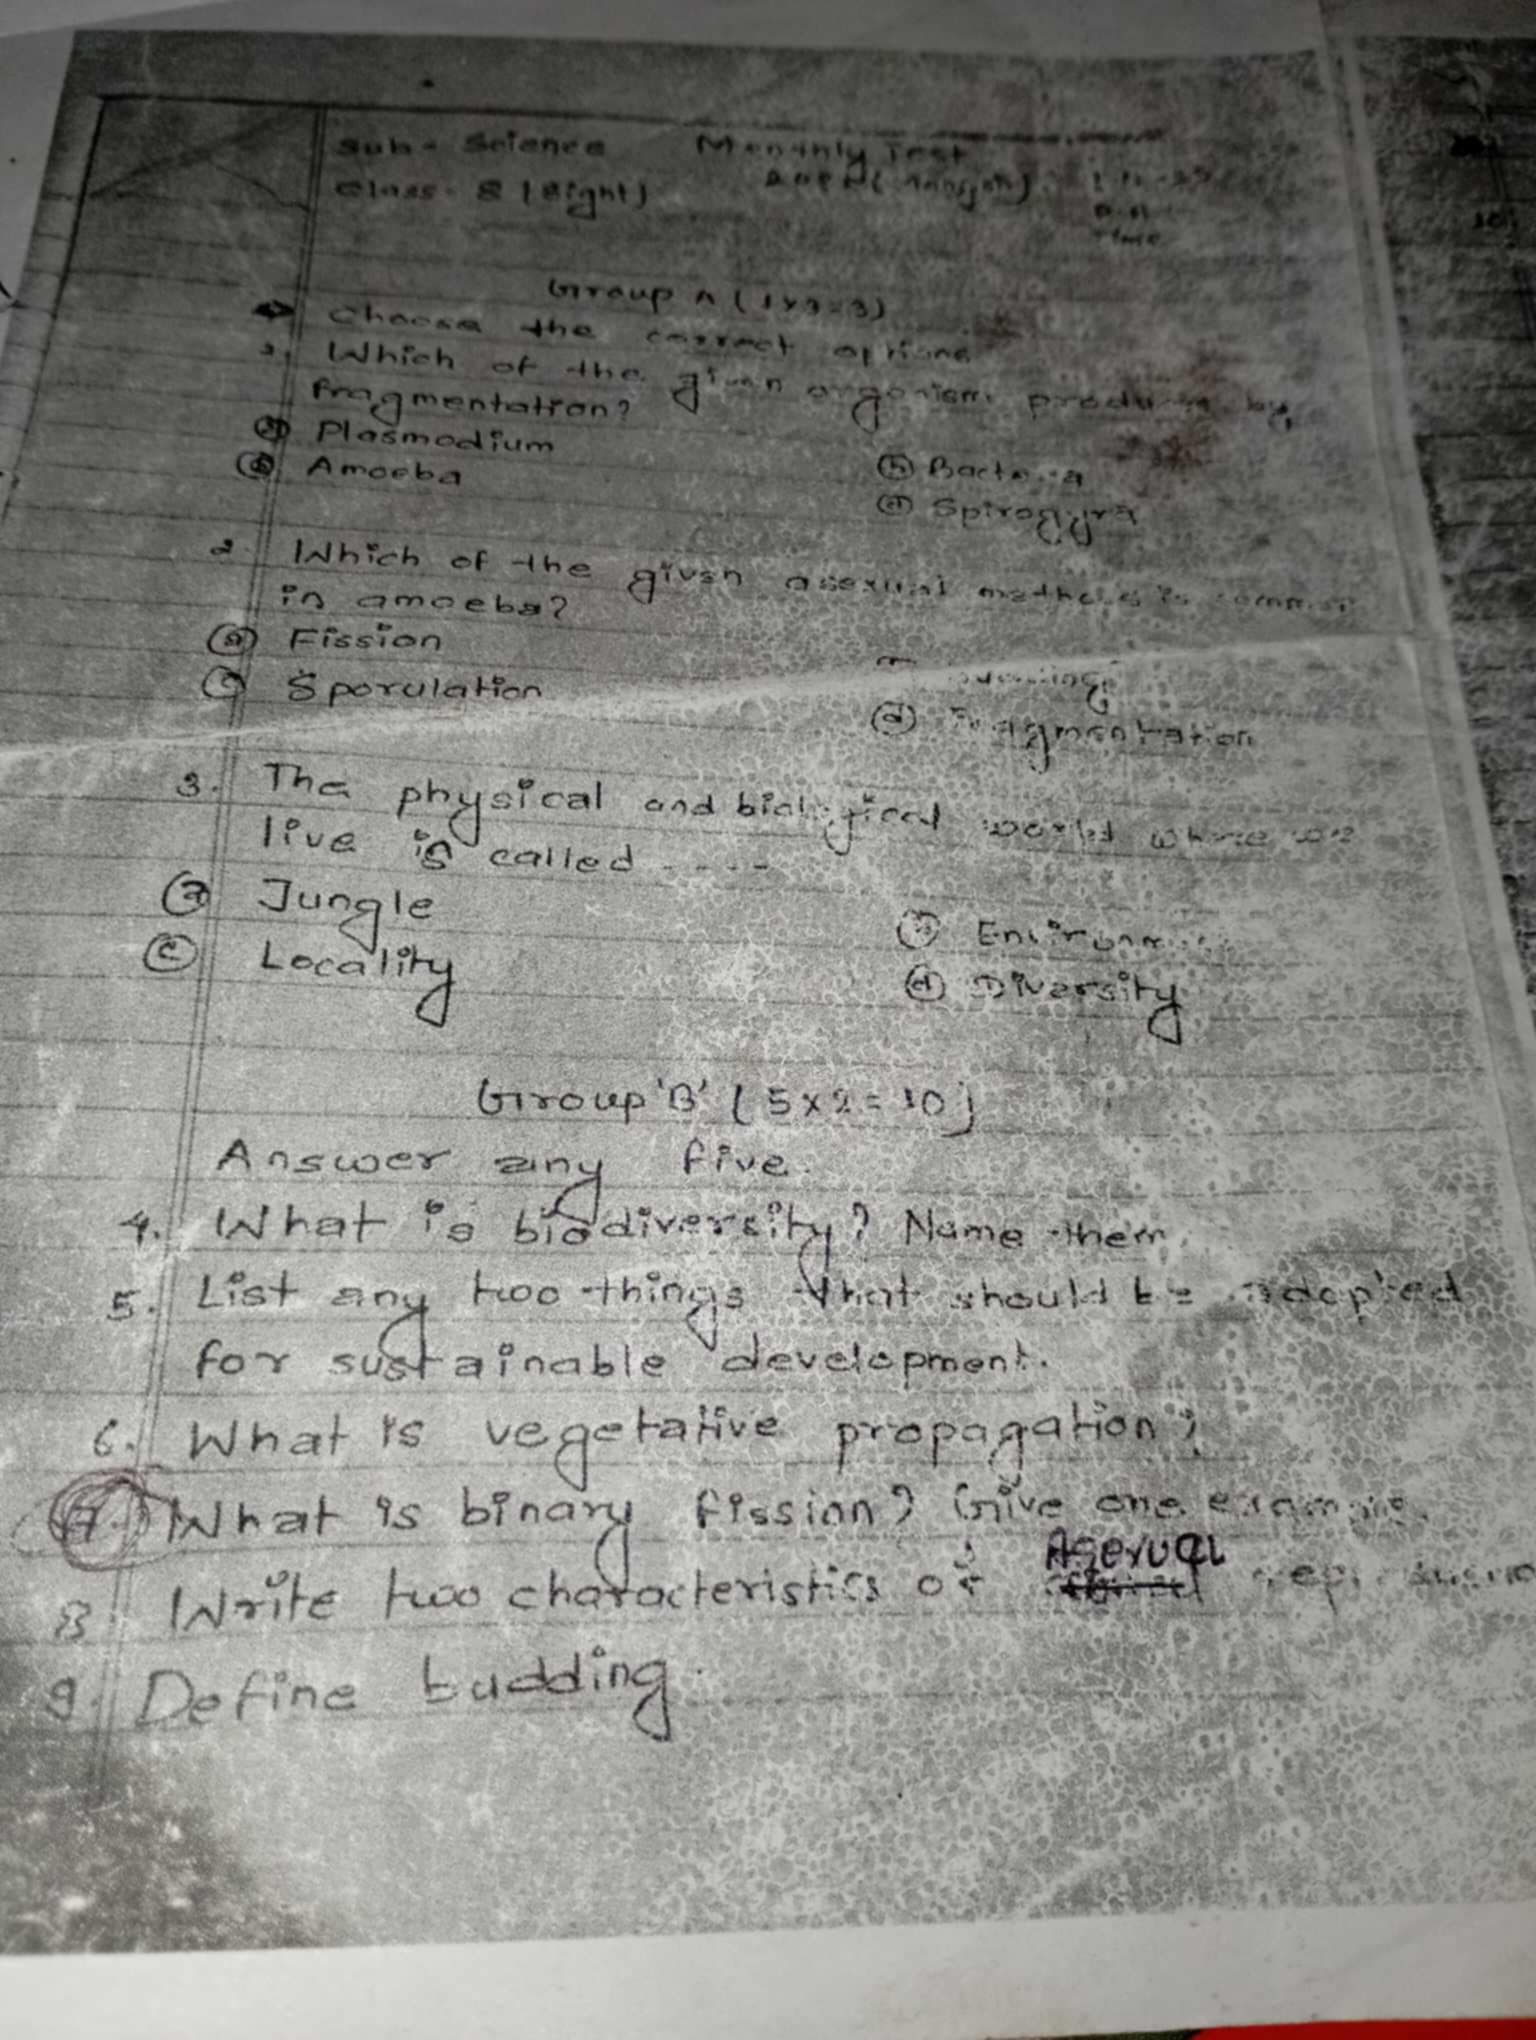 Sub - Science Monthly Test
Class - 8 (Eight)
Time
Group A (1x3=3)
Choose the correct options
1. Which of the given organism produces by
fragmentation?
(a) Plasmodium
(b) Bacteria
(c) Amoeba
(d) Spirogyra
2. Which of the given asexual methods is common
in amoeba?
(a) Fission
(c) Sporulation
(d) Fragmentation
3. The physical and biological world where we
live is called ----
(a) Jungle
(b) Environment
(c) Locality
(d) Diversity
Group 'B' (5x2=10)
Answer any five.
4. What is biodiversity? Name them.
5. List any two things that should be adopted
for sustainable development.
6. What is vegetative propagation?
7. What is binary fission? Give one example.
Asexual
8 Write two characteristics of reproduction
9. Define budding.